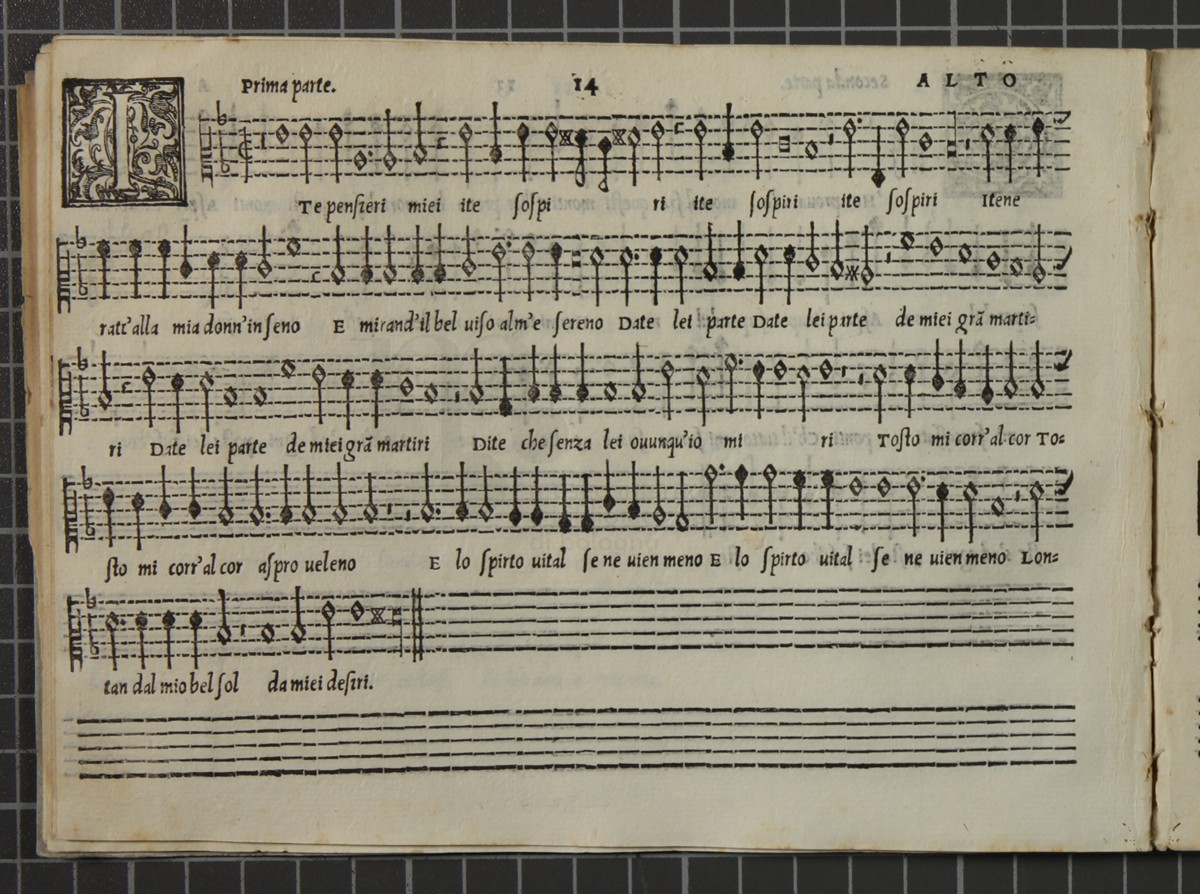 Prima parte. 14 ALTO
I
Te pensieri miei ite sospi ri ite sospiri ite sospiri Itene
ratt'alla mia donn'in seno E mirand'il bel uiso alm'e sereno Date lei parte Date lei parte de miei grã marti=
ri Date lei parte de miei grã martiri Dite che senza lei ouunqu'io mi ri Tosto mi corr'al cor To=
sto mi corr'al cor aspro ueleno E lo spirto uital se ne uien meno E lo spirto uital se ne uien meno Lon=
tan dal mio bel sol da miei desiri.